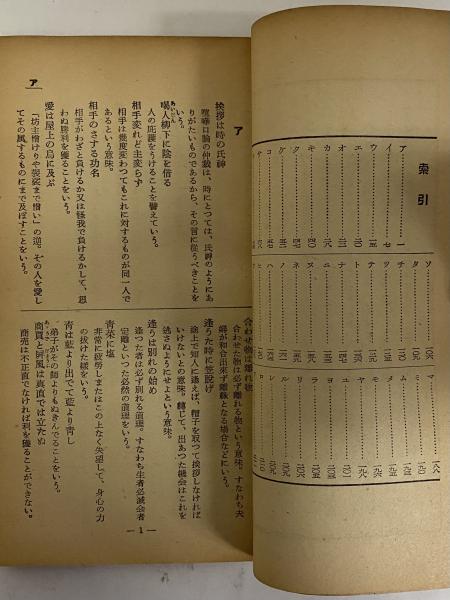 索引
ア
イ
ウ
エ
オ
カ
キ
ク
ケ
コ
サ
ソ
タ
チ
ツ
テ
ト
ナ
ニ
ヌ
ネ
ノ
ハ
ヒ
マ
ミ
ム
メ
モ
ヤ
ユ
ヨ
ラ
リ
ル
レ
ロ
ア
ア
挨拶は時の氏神
喧嘩口論の仲裁は、時にとつては、氏神のようにあ
りがたいものであるから、その言に従うべきことを
いう。
喝人柳下に陰を借る
人の庇護をうけることを譬えていう。
相手変れど主変らず
相手は幾度変わつてもこれに対するものが同一人で
あるという意味。
相手のさする功名
相手がわざと負けるか又は怪我で負けるかして、思
わぬ勝利を獲ることをいう。
愛は屋上の烏に及ぶ
「坊主憎けりや袈裟まで憎い」の逆。その人を愛し
てその属するものにまで及ぼすことをいう。
合わせ物は離れ物
合わせた物は必ず離れる物という意味。すなわち夫
婦が和合出来ず離縁となる場合などにいう。
逢うた時に笠脱げ
途上で知人に逢えば、帽子を取つて挨拶しなければ
いけないとの意味。転じて、出あつた機会はこれを
逃さぬようにせよという意味。
逢うは別れの始め
逢つた者は必ず別れる道理。すなわち生者必滅会者
定離といつた必然の道理をいう。
青菜に塩
非常に疲労しまたはこの上なく失望して、身心の力
の抜けた様をいう。
青は藍より出でて藍より青し
弟子がその師よりもぬきんでることをいう。
商買と屏風は真直では立たぬ
商売は不正直でなければ利を獲ることができない。
— 1 —